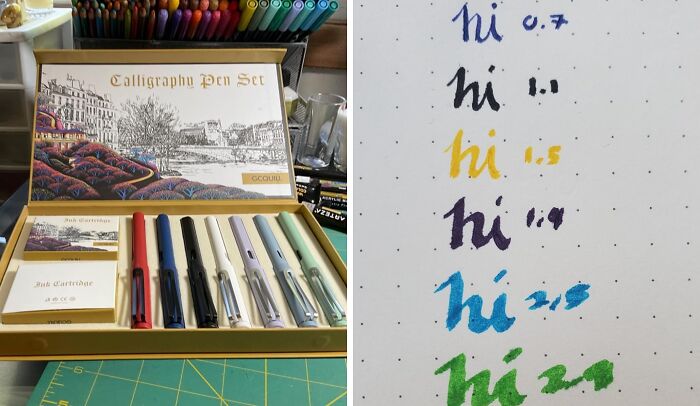 Calligraphy Pen Set
GCQUILL
ARTEZA
Ink Cartridge
GCQUILL
Ink Cartridge
GCQUILL
hi 0.7
hi 1.1
hi 1.5
hi 1.9
hi 2.5
hi 2.9